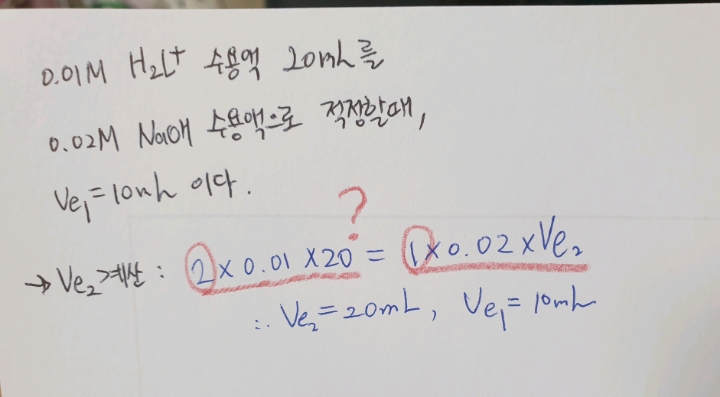 0.01M H₂L⁺ 수용액 20mL를
0.02M NaOH 수용액으로 적정할때,
Ve₁=10mL 이다.
?
→ Ve₂ 계산 : 2 × 0.01 × 20 = 1 × 0.02 × Ve₂
∴ Ve₂ = 20mL, Ve₁ = 10mL